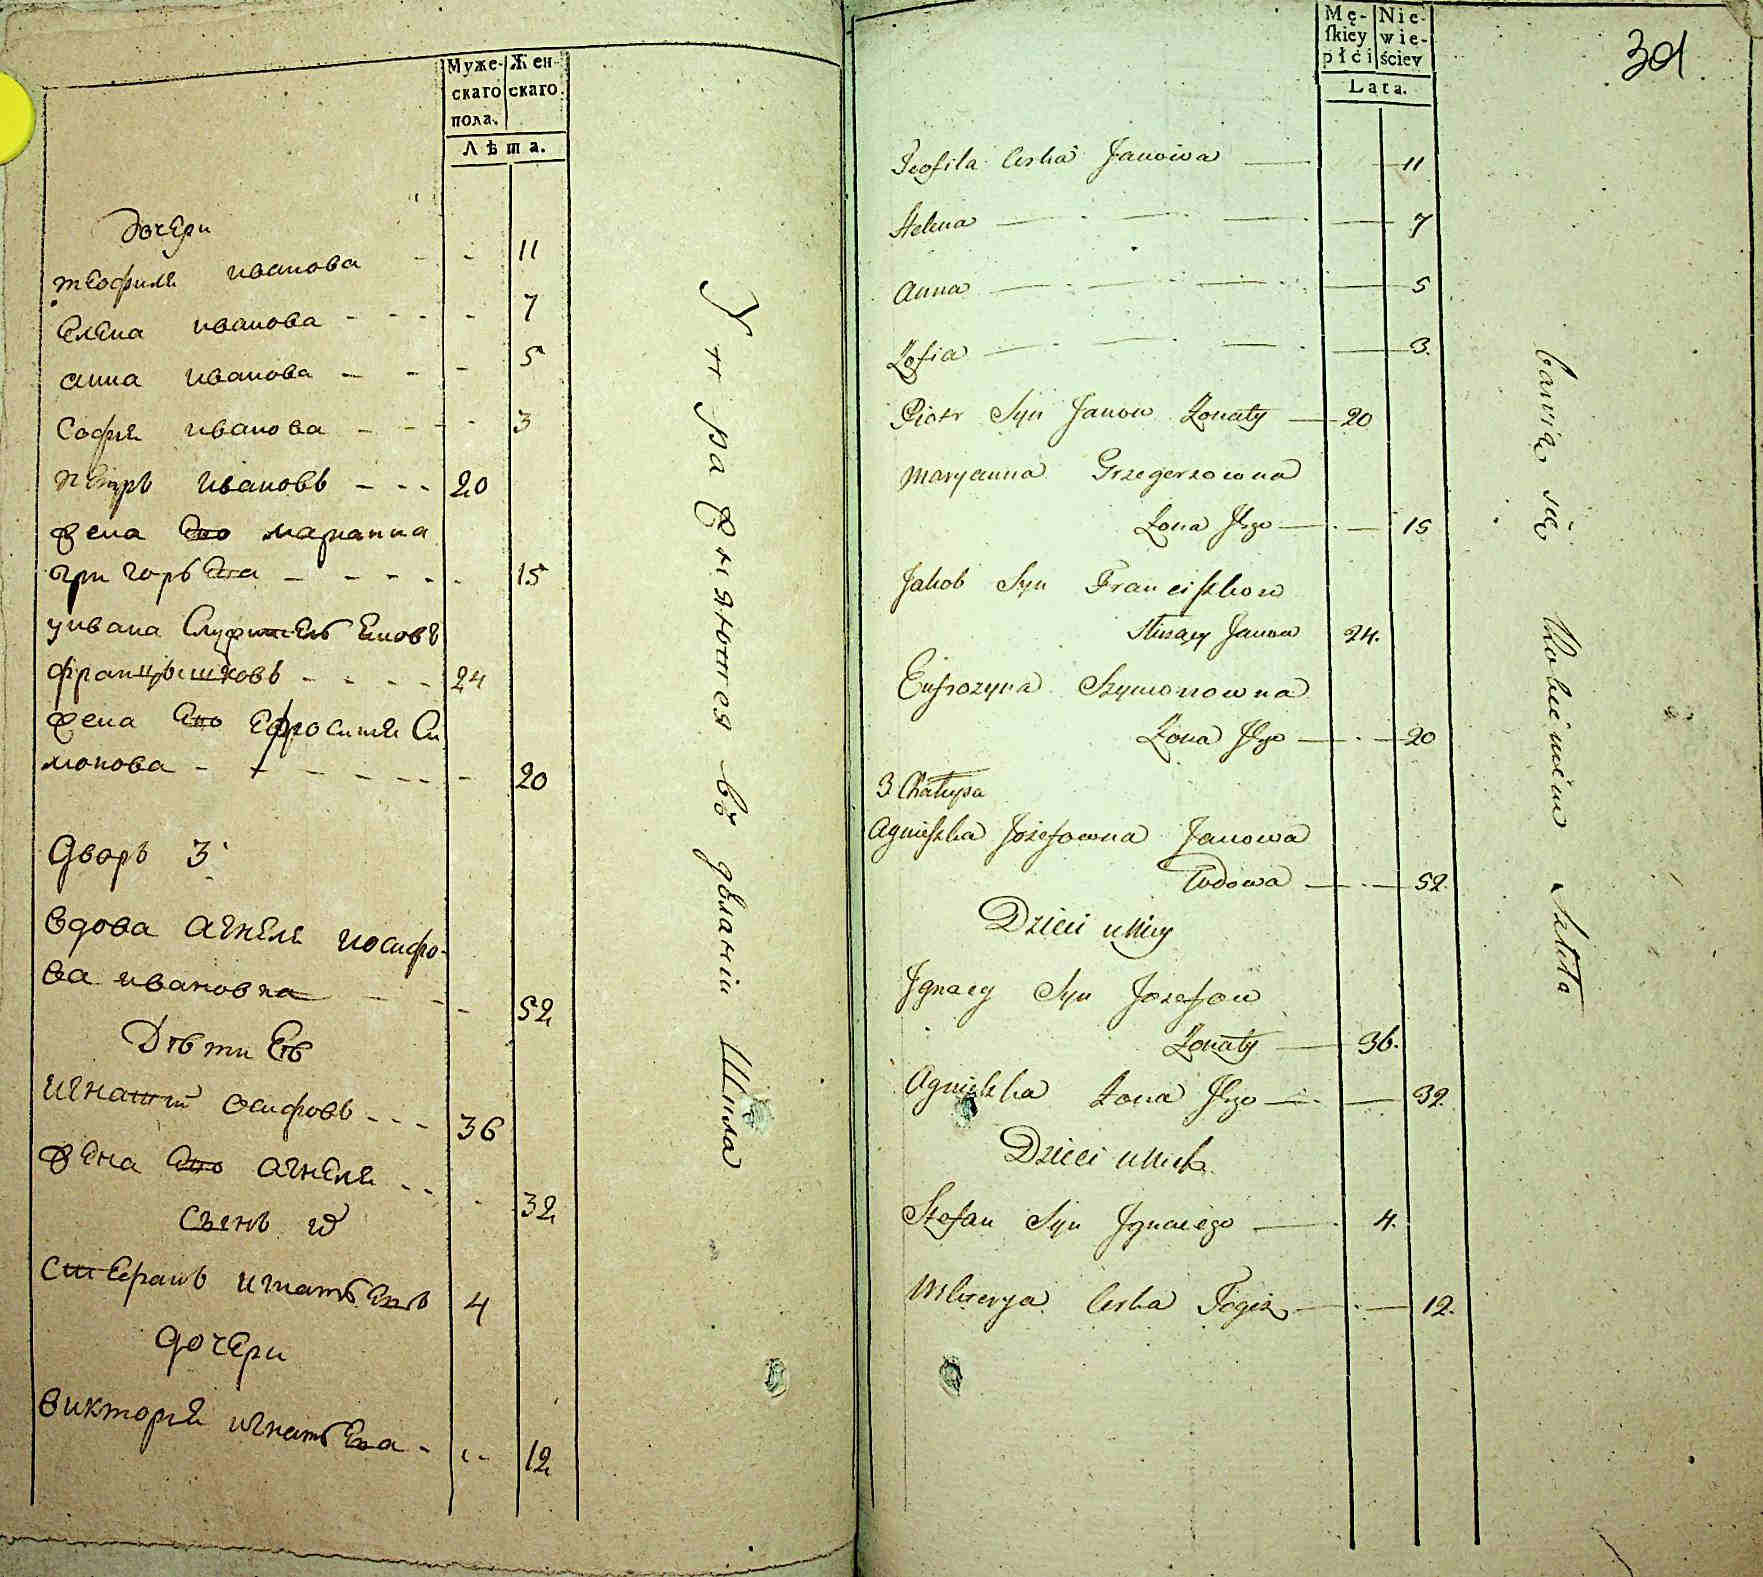 Муже-
скаго
пола.
Жен-
скаго.
Лѣта.
дочери
теофиля иванова - - 11
Елена иванова - - - - 7
анна иванова - - - 5
София иванова - - - - 3
петръ ивановъ - - - 20
жена Его марианна
григорьева - - - - - 15
уивана Служитель
францышковъ - - - - 24
жена Его Ефросиния Си
монова - - - - - - - 20
Дворъ 3
Вдова Агнеля иосифо-
ва ивановна - - - 52
Дѣти Еѣ
игнатий осифовъ - - - 36
жена Его агнеля - - - 32
сынъ
Стефанъ игнатьевъ 4
дочери
викторія игнатьева - - - 12
Упражняются въ дѣланіи
Mę-
ſkiey
płci
Nie-
wie-
ściey
Lata.
301
Teofila Corka Janowa — — 11
Helena — — — — 7
Anna — — — — 5
Zofia — — — — 3.
Piotr Syn Janow Zonaty — 20
Maryanna Grzegorzowna
Zona Jego — — 15
Jakob Syn Franciſzkow
Słuzący Janow 24.
Eufrozyna Szymonowna
Zona Jego — — 20
3 Chałupa
Agnieſzka Jozefowna Janowa
Wdowa — — 52.
Dzieci u Niey
Jgnacy Syn Jozefow
Zonaty — 36.
Agnieszka Zona Jego — — 32
Dzieci u Nich
Stefan Syn Jgnacego — 4.
Corka Tegoz — — 12.
bawią się Robieniem